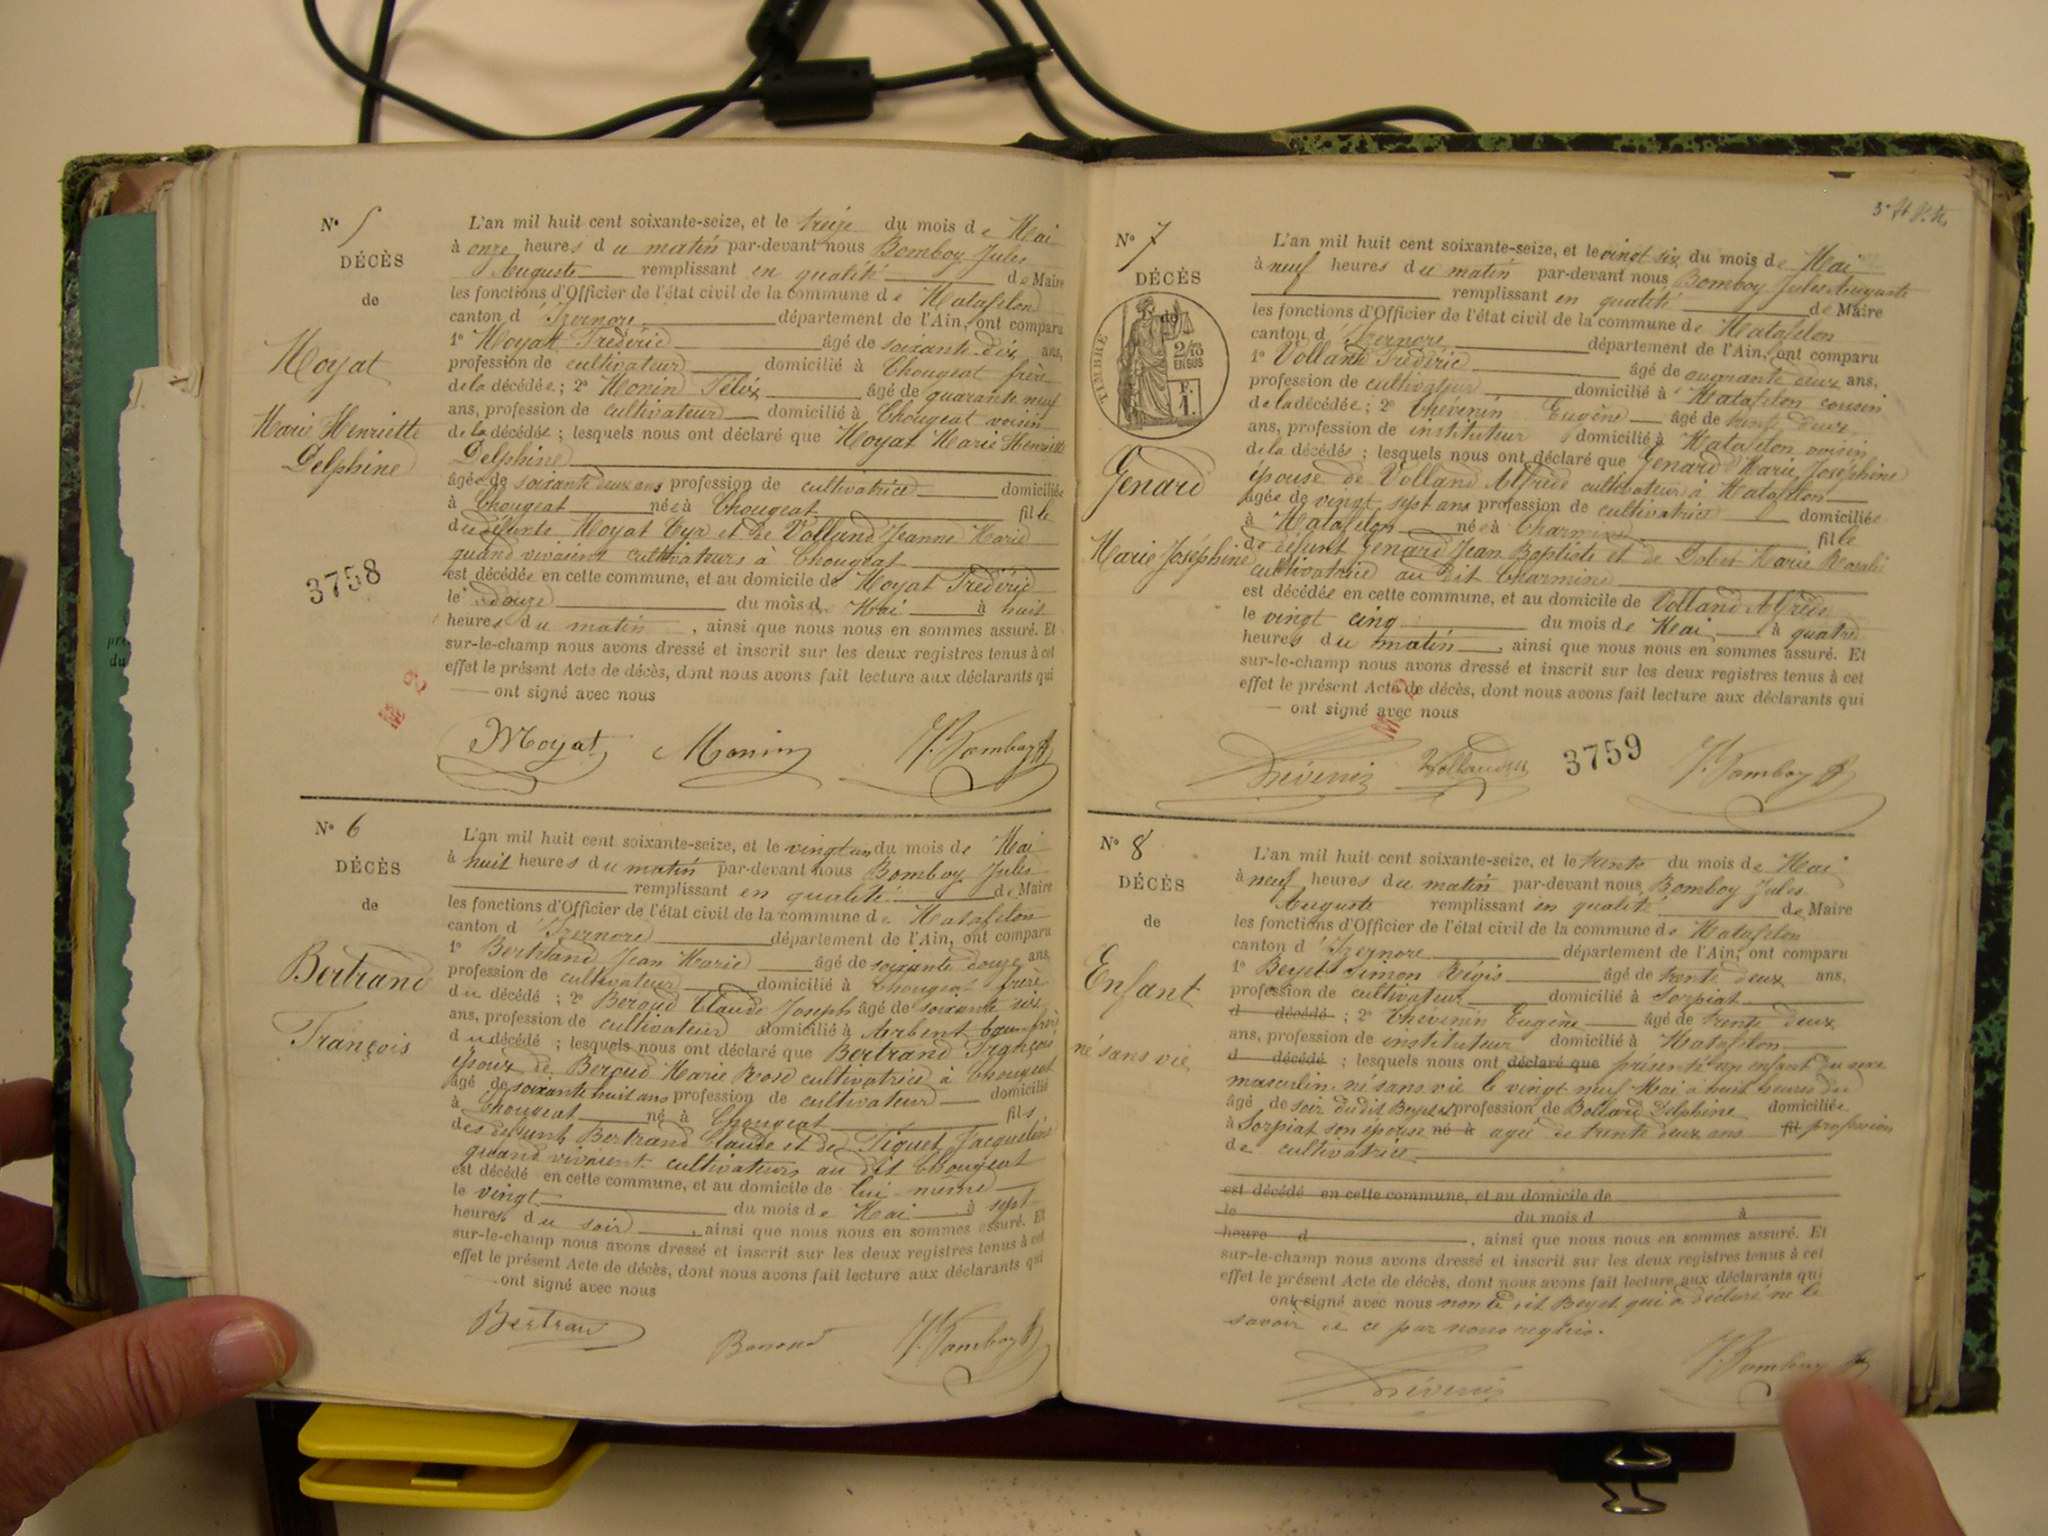 N° 5
DÉCÈS
de
Moyat
Marie Henriette
Delphine
3758
M
L'an mil huit cent soixante-seize, et le treize du mois de Mai
à onze heures du matin par-devant nous Bomboy Jules
Auguste remplissant en qualité de Maire
les fonctions d'Officier de l'état civil de la commune de Matafelon
canton d'Izernore département de l'Ain, ont comparu
1° Moyat Frédéric âgé de soixante-dix ans,
profession de cultivateur domicilié à Chougeat frère
de la décédée; 2° Monin Félix âgé de quarante neuf
ans, profession de cultivateur domicilié à Chougeat voisin
de la décédée; lesquels nous ont déclaré que Moyat Marie Henriette
Delphine
âgée de soixante deux ans profession de cultivatrice domiciliée
à Chougeat née à Chougeat fille
de défunts Moyat Cyr et de Volland Jeanne Marie
quand vivaient cultivateurs à Chougeat
est décédée en cette commune, et au domicile de Moyat Frédéric
le douze du mois de Mai à huit
heures du matin, ainsi que nous nous en sommes assuré. Et
sur-le-champ nous avons dressé et inscrit sur les deux registres tenus à cet
effet le présent Acte de décès, dont nous avons fait lecture aux déclarants qui
ont signé avec nous
Moyat Monin J. Bomboy
N° 6
DÉCÈS
de
Bertrand
François
L'an mil huit cent soixante-seize, et le vingt un du mois de Mai
à huit heures du matin par-devant nous Bomboy Jules
remplissant en qualité de Maire
les fonctions d'Officier de l'état civil de la commune de Matafelon
canton d'Izernore département de l'Ain, ont comparu
1° Bertrand Jean Marie âgé de soixante douze ans,
profession de cultivateur domicilié à Chougeat frère
du décédé; 2° Beroud Claude Joseph âgé de soixante six
ans, profession de cultivateur domicilié à Arbent beau-frère
du décédé; lesquels nous ont déclaré que Bertrand François
époux de Beroud Marie Rose cultivatrice à Chougeat
âgé de soixante huit ans profession de cultivateur domicilié
à Chougeat né à Chougeat fils
des défunts Bertrand Claude et de Piquet Jacqueline
quand vivaient cultivateurs au dit Chougeat
est décédé en cette commune, et au domicile de lui même
le vingt du mois de Mai à sept
heures du soir, ainsi que nous nous en sommes assuré. Et
sur-le-champ nous avons dressé et inscrit sur les deux registres tenus à cet
effet le présent Acte de décès, dont nous avons fait lecture aux déclarants qui
ont signé avec nous
Bertrand J. Bomboy
N° 7
DÉCÈS
de
TIMBRE
2/10
EN SUS
F.
1.
Genard
Marie Joséphine
L'an mil huit cent soixante-seize, et le vingt six du mois de Mai
à neuf heures du matin par-devant nous Bomboy Jules Auguste
remplissant en qualité de Maire
les fonctions d'Officier de l'état civil de la commune de Matafelon
canton d'Izernore département de l'Ain, ont comparu
1° Volland Frédéric âgé de quarante deux ans,
profession de cultivateur domicilié à Matafelon cousin
de la décédée; 2° Thévenin Eugène âgé de trente deux
ans, profession de instituteur domicilié à Matafelon voisin
de la décédée; lesquels nous ont déclaré que Genard Marie Joséphine
épouse de Volland Alfred cultivateur à Matafelon
âgée de vingt sept ans profession de cultivatrice domiciliée
à Matafelon née à Charmine fille
de défunt Genard Jean Baptiste et de Marie Rosalie
cultivatrice au dit Charmine
est décédée en cette commune, et au domicile de Volland Alfred
le vingt cinq du mois de Mai à quatre
heures du matin, ainsi que nous nous en sommes assuré. Et
sur-le-champ nous avons dressé et inscrit sur les deux registres tenus à cet
effet le présent Acte de décès, dont nous avons fait lecture aux déclarants qui
ont signé avec nous
M
Thévenin Volland 3759 J. Bomboy
N° 8
DÉCÈS
de
Enfant
né sans vie
L'an mil huit cent soixante-seize, et le trente du mois de Mai
à neuf heures du matin par-devant nous Bomboy Jules
Auguste remplissant en qualité de Maire
les fonctions d'Officier de l'état civil de la commune de Matafelon
canton d'Izernore département de l'Ain, ont comparu
1° Beyet Simon Régis âgé de trente deux ans,
profession de cultivateur domicilié à Sorpiat
d décédé; 2° Thévenin Eugène âgé de trente deux
ans, profession de instituteur domicilié à Matafelon
d décédé; lesquels nous ont déclaré que présenté un enfant du sexe
masculin né sans vie le vingt neuf Mai à huit heures du
âgé de soir du dit Beyet et profession de Bollard Delphine domiciliée
à Sorpiat son épouse né à agée de trente deux ans fil profession
de cultivatrice
est décédé en cette commune, et au domicile de
le du mois d à
heure d, ainsi que nous nous en sommes assuré. Et
sur-le-champ nous avons dressé et inscrit sur les deux registres tenus à cet
effet le présent Acte de décès, dont nous avons fait lecture aux déclarants qui
ont signé avec nous non le dit Beyet qui a déclaré ne le
savoir de ce par nous requis.
Thévenin J. Bomboy